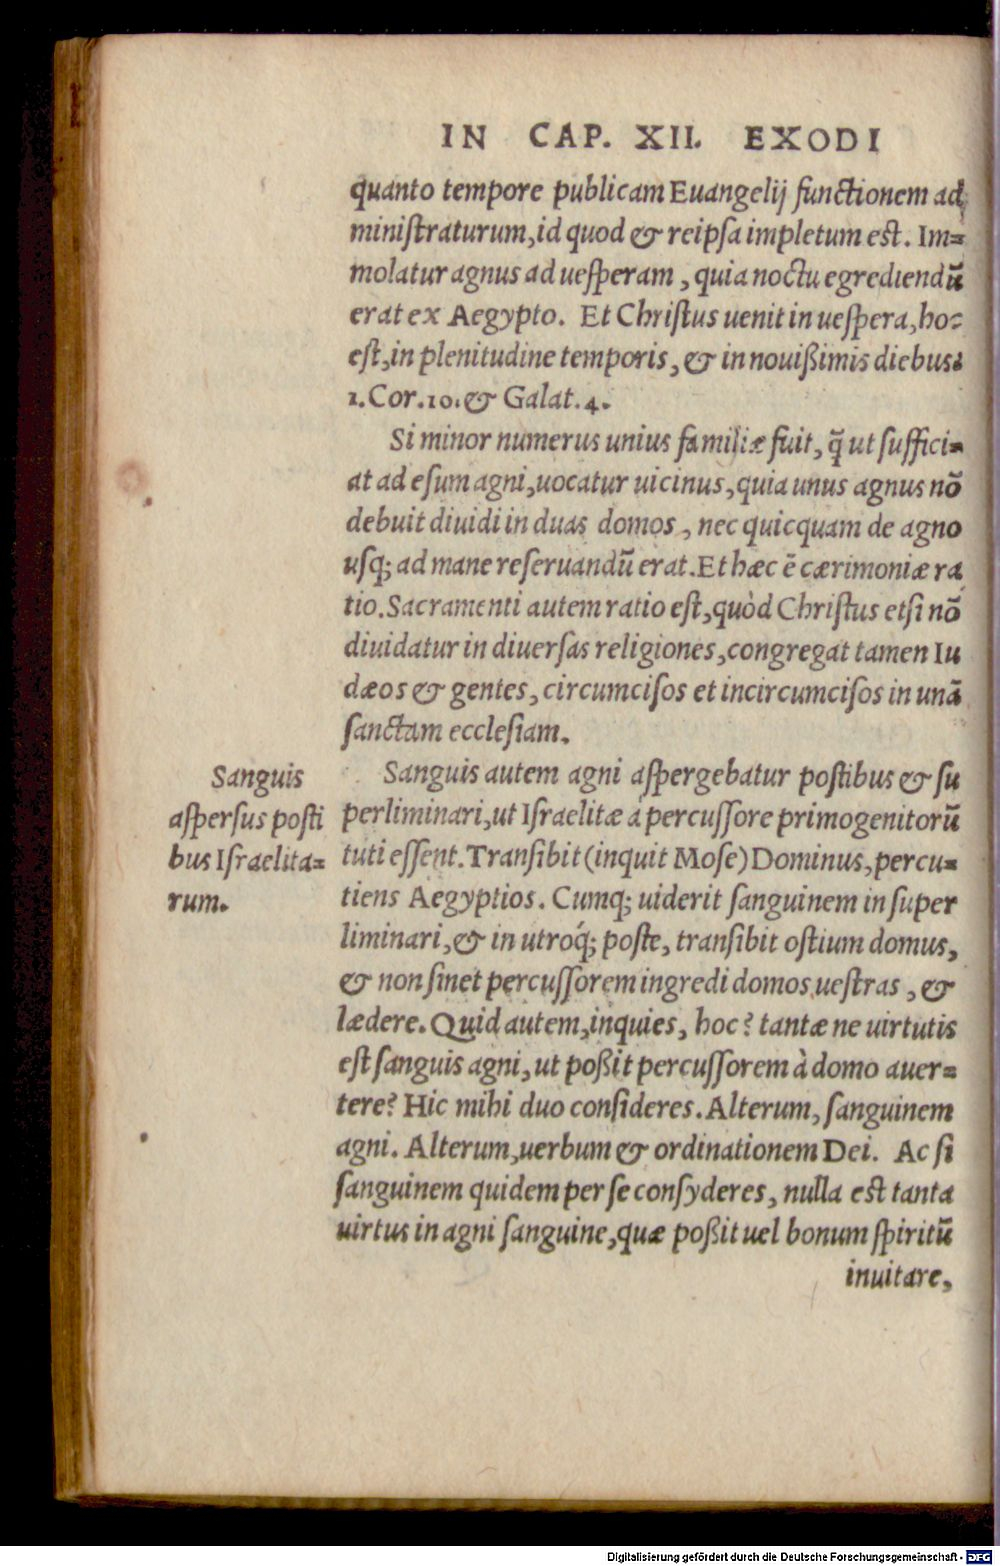 IN CAP. XII. EXODI
quanto tempore publicam Euangelij functionem ad
miniſtraturum, id quod & reipſa impletum eſt. Im=
molatur agnus ad ueſperam, quia noctu egrediendũ
erat ex Aegypto. Et Chriſtus uenit in ueſpera, hoc
eſt, in plenitudine temporis, & in nouißimis diebus.
1. Cor. 10. & Galat. 4.
Si minor numerus unius familiæ fuit, q̃ ut ſuffici=
at ad eſum agni, uocatur uicinus, quia unus agnus nõ
debuit diuidi in duas domos, nec quicquam de agno
uſq; ad mane reſeruandũ erat. Et hæc ẽ cærimoniæ ra
tio. Sacramenti autem ratio eſt, quòd Chriſtus etſi nõ
diuidatur in diuerſas religiones, congregat tamen Iu
dæos & gentes, circumciſos et incircumciſos in unã
ſanctam eccleſiam.
Sanguis autem agni aſpergebatur poſtibus & ſu
perliminari, ut Iſraelitæ à percuſſore primogenitorũ
tuti eſſent. Tranſibit (inquit Moſe) Dominus, percu=
tiens Aegyptios. Cumq; uiderit ſanguinem in ſuper
liminari, & in utroq́; poſte, tranſibit oſtium domus,
& non ſinet percuſſorem ingredi domos ueſtras, &
lædere. Quid autem, inquies, hoc? tantæ ne uirtutis
eſt ſanguis agni, ut poßit percuſſorem à domo auer=
tere? Hic mihi duo conſideres. Alterum, ſanguinem
agni. Alterum, uerbum & ordinationem Dei. Ac ſi
ſanguinem quidem per ſe conſyderes, nulla eſt tanta
uirtus in agni ſanguine, quæ poßit uel bonum ſpiritũ
inuitare,
Sanguis
aſperſus poſti
bus Iſraelita=
rum.
Digitalisierung gefördert durch die Deutsche Forschungsgemeinschaft - DFG